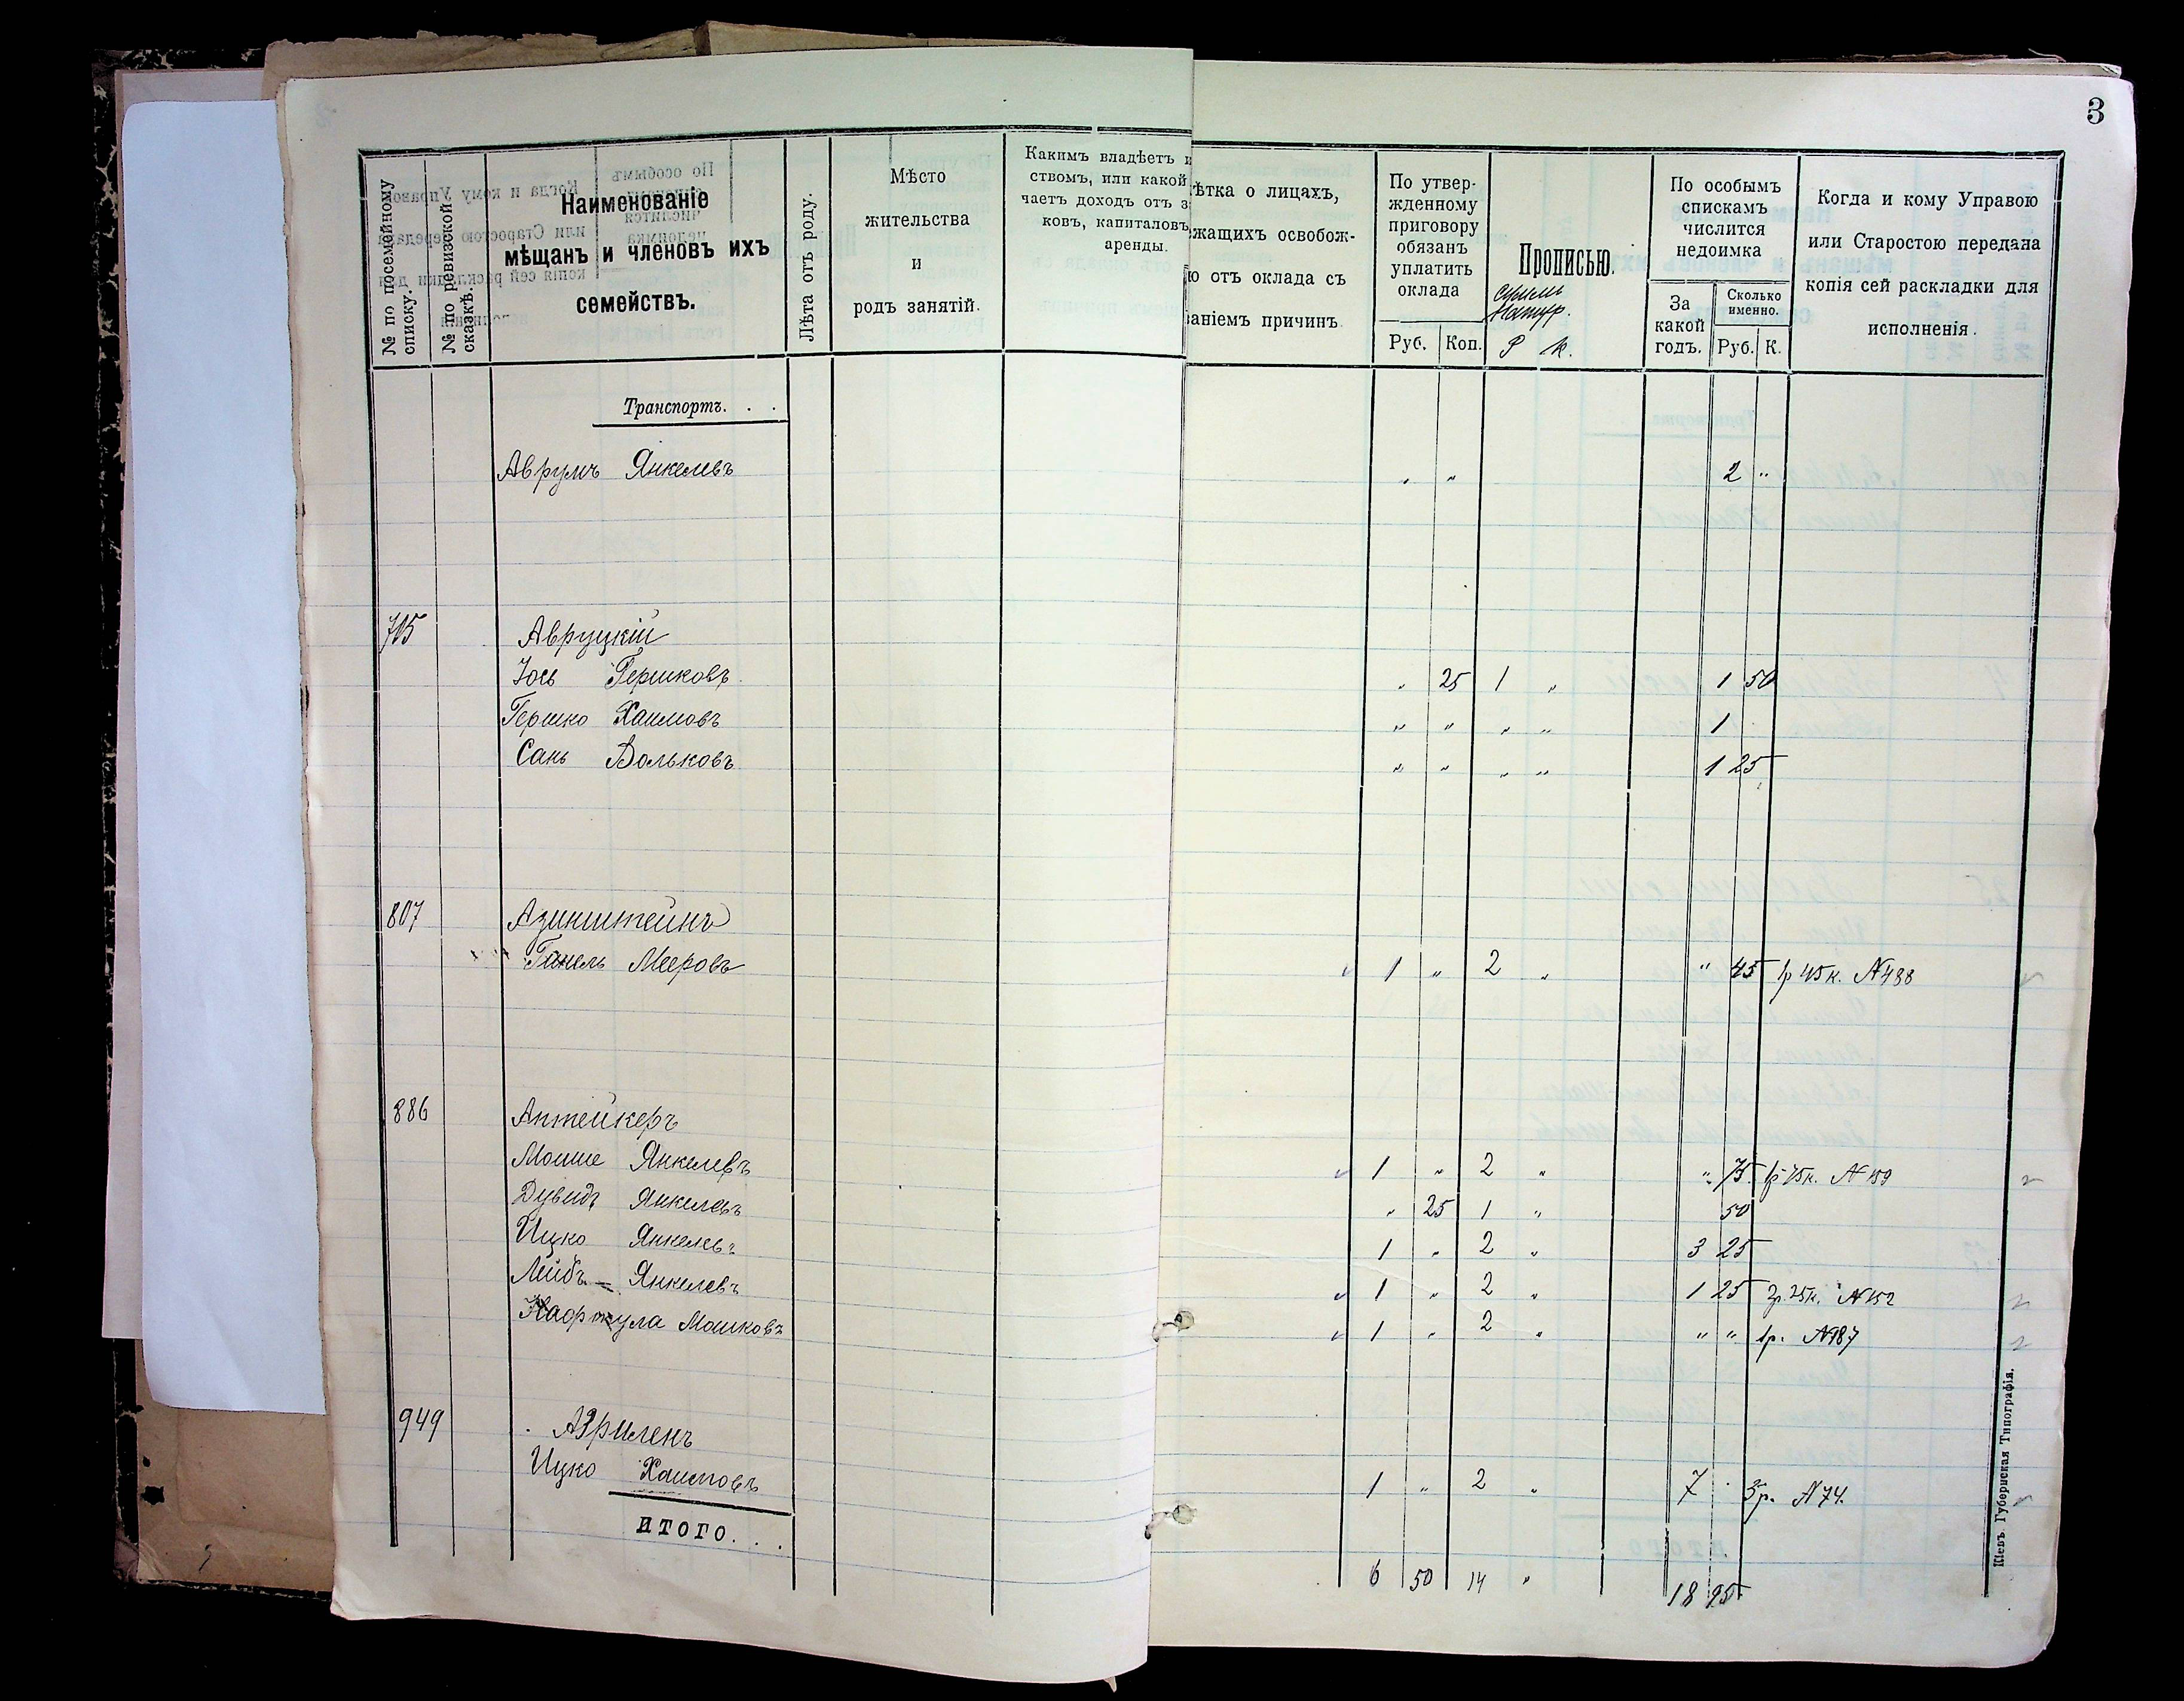 3
№ по посемейному списку.
№ по ревизской сказкѣ.
Наименованіе
мѣщанъ и членовъ ихъ
семействъ.
Лѣта отъ роду.
Мѣсто
жительства
и
родъ занятій.
Какимъ владѣетъ и
ствомъ, или какой
чаетъ доходъ отъ з
ковъ, капиталовъ
аренды.
ѣтка о лицахъ,
жащихъ освобож-
ю отъ оклада съ
аніемъ причинъ
По утвер-
жденному
приговору
обязанъ
уплатить
оклада
Руб. Коп.
Прописью.
Р К.
По особымъ
спискамъ
числится
недоимка
За
какой
годъ.
Сколько
именно.
Руб. К.
Когда и кому Управою
или Старостою передана
копія сей раскладки для
исполненія.
Транспортъ. . .
Аврумъ Янкелевъ " " 2 "
705 Авруцкій
Іось Гершковъ " 25 1 " 1 50
Гершко Хаимовъ " " " " 1
Сань Вольковъ " " " " 1 25
807 Азинштейнъ
Мееровъ 1 " 2 " " 45 1р 45к. N488
886 Аптейкеръ
Мошке Янкелевъ 1 " 2 " " 75 1р 75к. N159
Дувидъ Янкелевъ " 25 1 " 50
Ицко Янкелевъ 1 " 2 " 3 25
Лейбъ - Янкелевъ 1 " 2 " 1 25 2р. 25к. N152
Мошковъ 1 " 2 " " " 1р. N187
949 Азриленъ
Ицко Хаимовъ 1 " 2 " 7 3р. N74.
ИТОГО. . .
6 50 14 " 18 95
Кіевъ. Губернская Типографія.